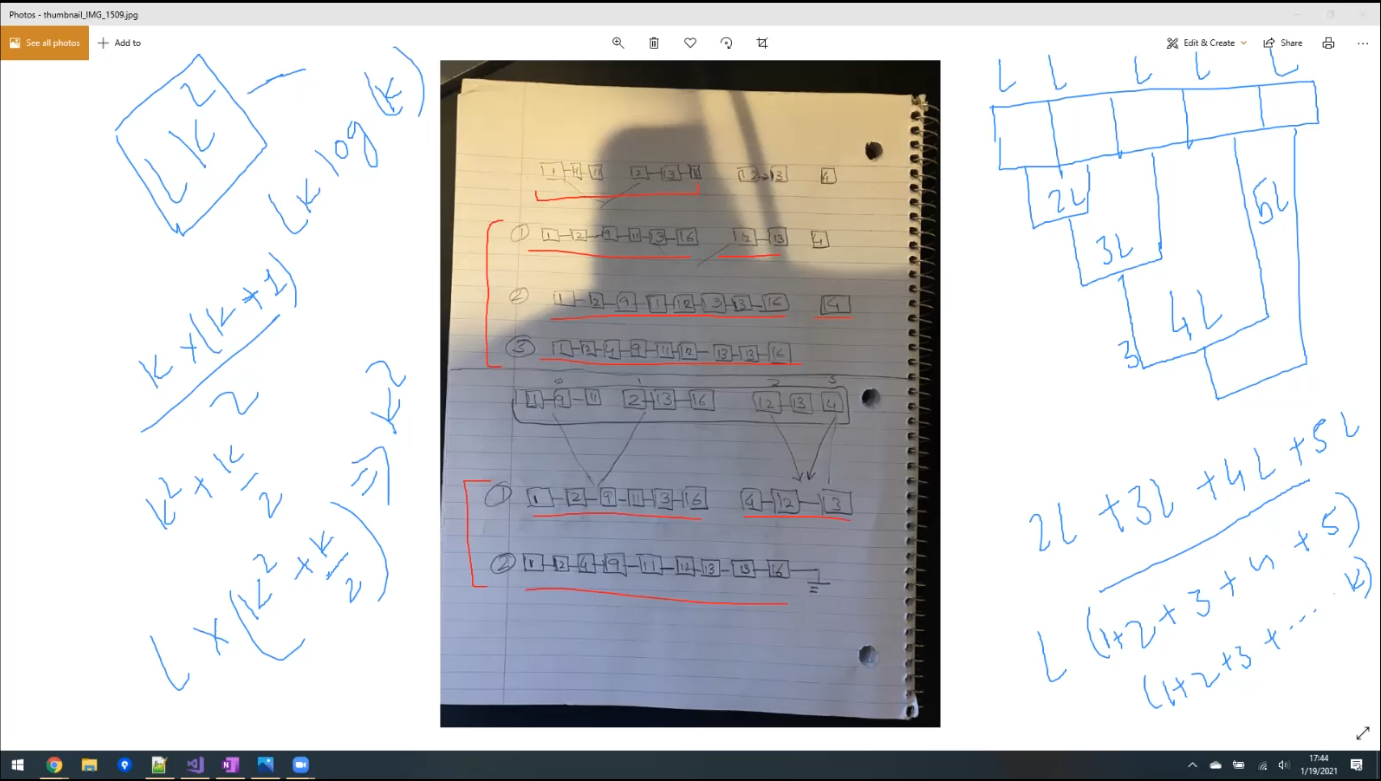 Photos - thumbnail_IMG_1509.jpg
See all photos
Add to
Edit & Create
Share
LK²
LK log (K)
K × (K+1)
2
K² + K
2
⇒ K²
L × (K² + K
2)
1 2 13 12 13 4
① 1 2 9 11 3 16 12 13 4
② 1 2 9 11 12 13 13 16 4
③ 1 2 4 9 11 12 13 13 16
0 1 2 3
1 9 11 2 13 16 12 13 4
① 1 2 9 11 3 16 4 12 13
② 1 2 4 9 11 12 13 13 16
L L L L L
2L
3L
4L
5L
3
2L + 3L + 4L + 5L
L (1+2+3+4+5)
(1+2+3+....K)
17:44
1/19/2021